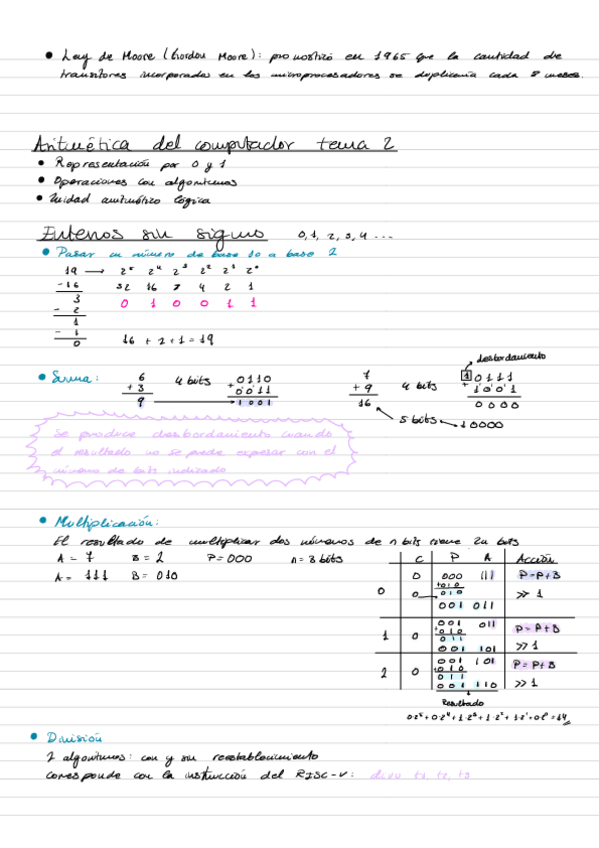 • Ley de Moore (Gordon Moore): pronosticó en 1965 que la cantidad de
transitores incorporados en los microprocesadores se duplicaría cada meses.
Aritmética del computador tema 2
• Representación por 0 y 1
• Operaciones con algoritmos
• Unidad aritmético lógica
Enteros sin signo 0, 1, 2, 3, 4 ...
• Pasar un número de base 10 a base 2
19 → 2⁵ 2⁴ 2³ 2² 2¹ 2⁰
-16 32 16 4 2 1
3 0 1 0 0 1 1
- 2
1
- 1
0 16 + 2 + 1 = 19
desbordamiento
• Suma: 6 4 bits 0110 7 4 bits 1 0111
+ 3 + 0011 + 9 + 1001
9 → 1001 16 0000
5 bits 10000
Se produce desbordamiento cuando
el resultado no se puede expresar con el
número de bits indicado
• Multiplicación:
El resultado de multiplicar dos números de n bits tiene 2n bits
A = 7 B = 2 P = 000 n = 3 bits
A = 111 B = 010
C P A Acción
0 0 000 111 P=P+B
+010
0 010 >> 1
001 011
1 0 001 011 P=P+B
+010
011 >> 1
001 101
2 0 001 101 P=P+B
+010
011 >> 1
001 110
Resultado
0·2⁵+0·2⁴+1·2³+1·2²+1·2¹+0 =14
• División
2 algoritmos: con y sin restablecimiento
corresponde con la instrucción del RISC-V: divu t1, t2, t3